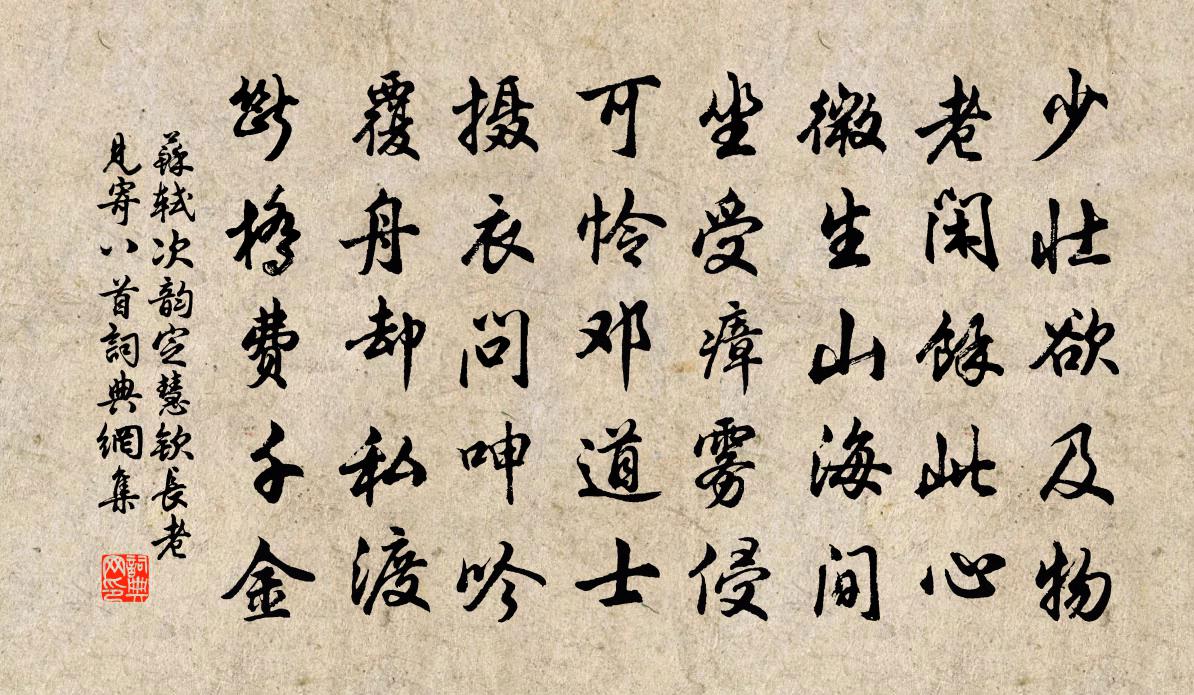 少壮欲及物
老闲餘此心
微生山海间
坐受瘴雾侵
可怜邓道士
摄衣问呻吟
覆舟却私渡
断橋费千金
蘇轼次韵定慧钦長老
見寄八首詞典網集
詞典
网印